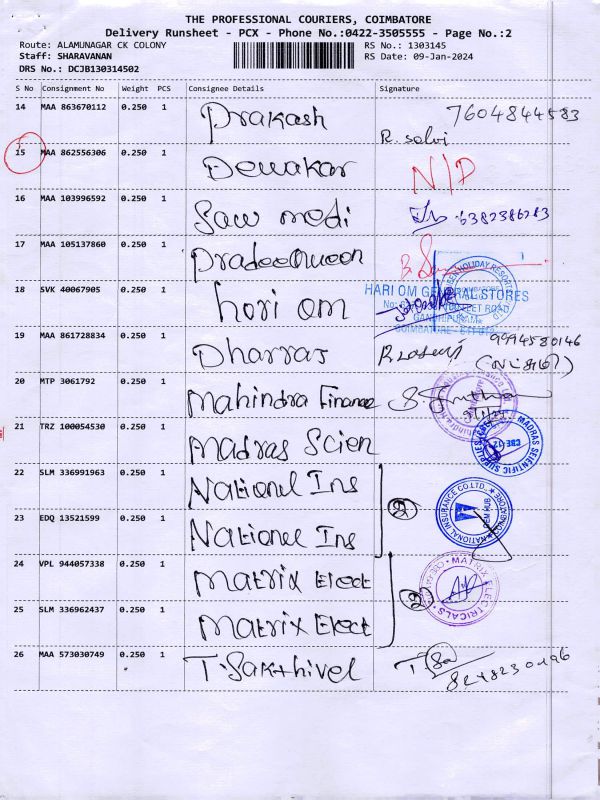 THE PROFESSIONAL COURIERS, COIMBATORE
Delivery Runsheet - PCX - Phone No.:0422-3505555 - Page No.:2
Route: ALAMUNAGAR CK COLONY
RS No.: 1303145
Staff: SHARAVANAN
RS Date: 09-Jan-2024
DRS No.: DCJB130314502
S No Consignment No Weight PCS Consignee Details Signature
14 MAA 863670112 0.250 1 Prakash 7604844583
R. selvi
15 MAA 862556306 0.250 1 Dewakar N/D
16 MAA 103996592 0.250 1 Saw medi 6382386283
17 MAA 105137860 0.250 1
18 SVK 40067905 0.250 1 hori om
HARI OM GENERAL STORES
19 MAA 861728834 0.250 1 Dharras 9994580146
20 MTP 3061792 0.250 1 Mahindra Finance
21 TRZ 100054530 0.250 1 Madras Scien
MADRAS SCIENTIFIC SUPPLIES
CBE-12
22 SLM 336991963 0.250 1 Nationel Ins
2
NATIONAL INSURANCE CO.LTD.
23 EDQ 13521599 0.250 1 Nationel Ins
24 VPL 944057338 0.250 1 Matrix Elect
2
MATRIX ELECTRICALS
25 SLM 336962437 0.250 1 Matrix Elect
26 MAA 573030749 0.250 1 T. Sakthivel T. Sa
8248230196